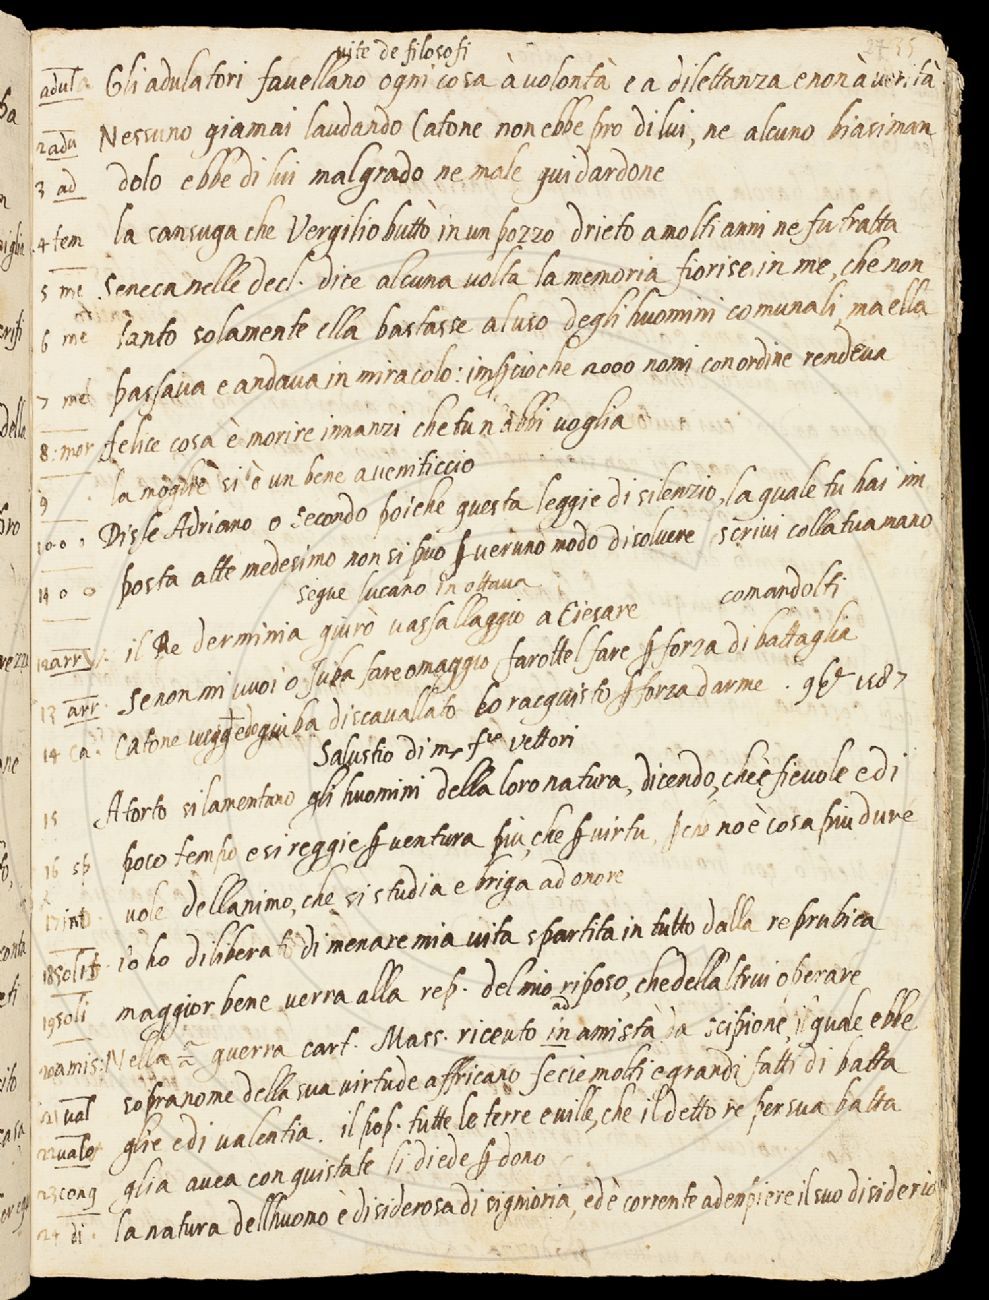 vite de filosofi
adul Gli adulatori favellano ogni cosa à volontà e a dilettanza e non à verità
2 adu Nessuno giamai laudando Catone non ebbe pro di lui, ne alcuno biasiman
3 ad dolo ebbe di lui malgrado ne male guidardone
4 tem la sansuga che Vergilio buttò in un pozzo drieto a molti anni ne fu tratta
5 me Seneca nelle decl. dice alcuna volta la memoria fiorise in me, che non
6 me tanto solamente ella bastasse al uso degli huomini comunali, ma ella
7 me passava e andava in miracolo: che 2000 nomi con ordine rendeva
8: mor felice cosa è morire innanzi che tu n abbi voglia
9 la moglie si è un bene aveniticcio
10 o Disse Adriano o Secondo poi che questa leggie di silenzio, la quale tu hai in
11 o posta atte medesimo non si può ꝑ veruno modo disolvere scrivi colla tua mano
segue lucano in ottava comandolti
12 arr il Re derminia giurò vassallaggio a Ciesare
13 arr se non mi vuoi o Juba fare omaggio farottel fare ꝑ forza di battaglia
14 Ca Catone Juba discavallato lo racquisto ꝑ forza darme . 1587
Salustio di mr vettori
15 A torto si lamentano gli huomini della loro natura, dicendo, che è fievole e di
16 sp poco tempo e si reggie ꝑ ventura più, che ꝑ virtu, no è cosa più dure
17 int vole dellanimo, che si studia e briga ad onore
18 solit io ho diliberato di menare mia vita spartita in tutto dalla reprubica
19 soli maggior bene verra alla rep. del mio riposo, che della ltrui operare
20 amis: Nella guerra cart. Mass. ricevto in amistà da Scipione, il quale ebbe
21 val sopranome della sua virtude affricano fecie molti e grandi fatti di batta
22 valo glie e di valentia. il pop. tutte le terre e ville, che il detto re per sua batta
23 conq glia avea conquistate li diede ꝑ dono
24 di. la natura dellhuomo è disiderosa di signioria, ed è corrente adenpiere il suo disiderio